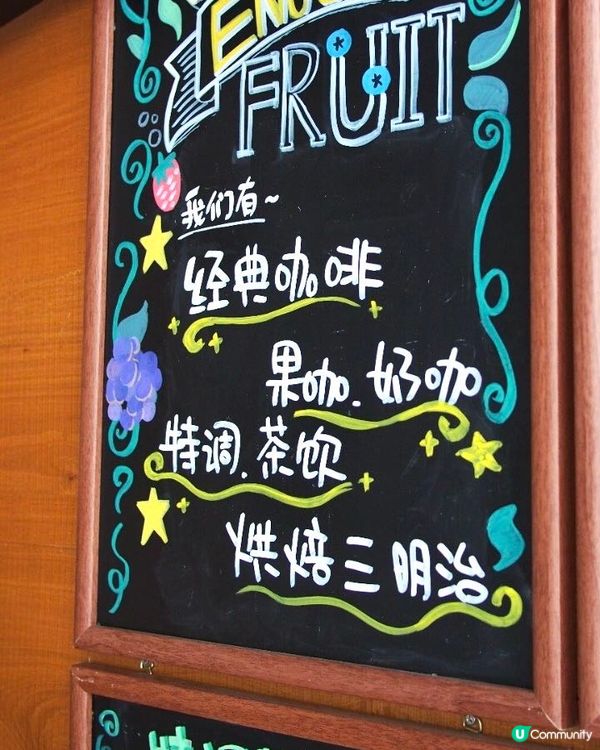 ENJOY
FRUIT
我们有~
经典咖啡
果咖.奶咖
特调.茶饮
烘焙三明治
特调
U Community